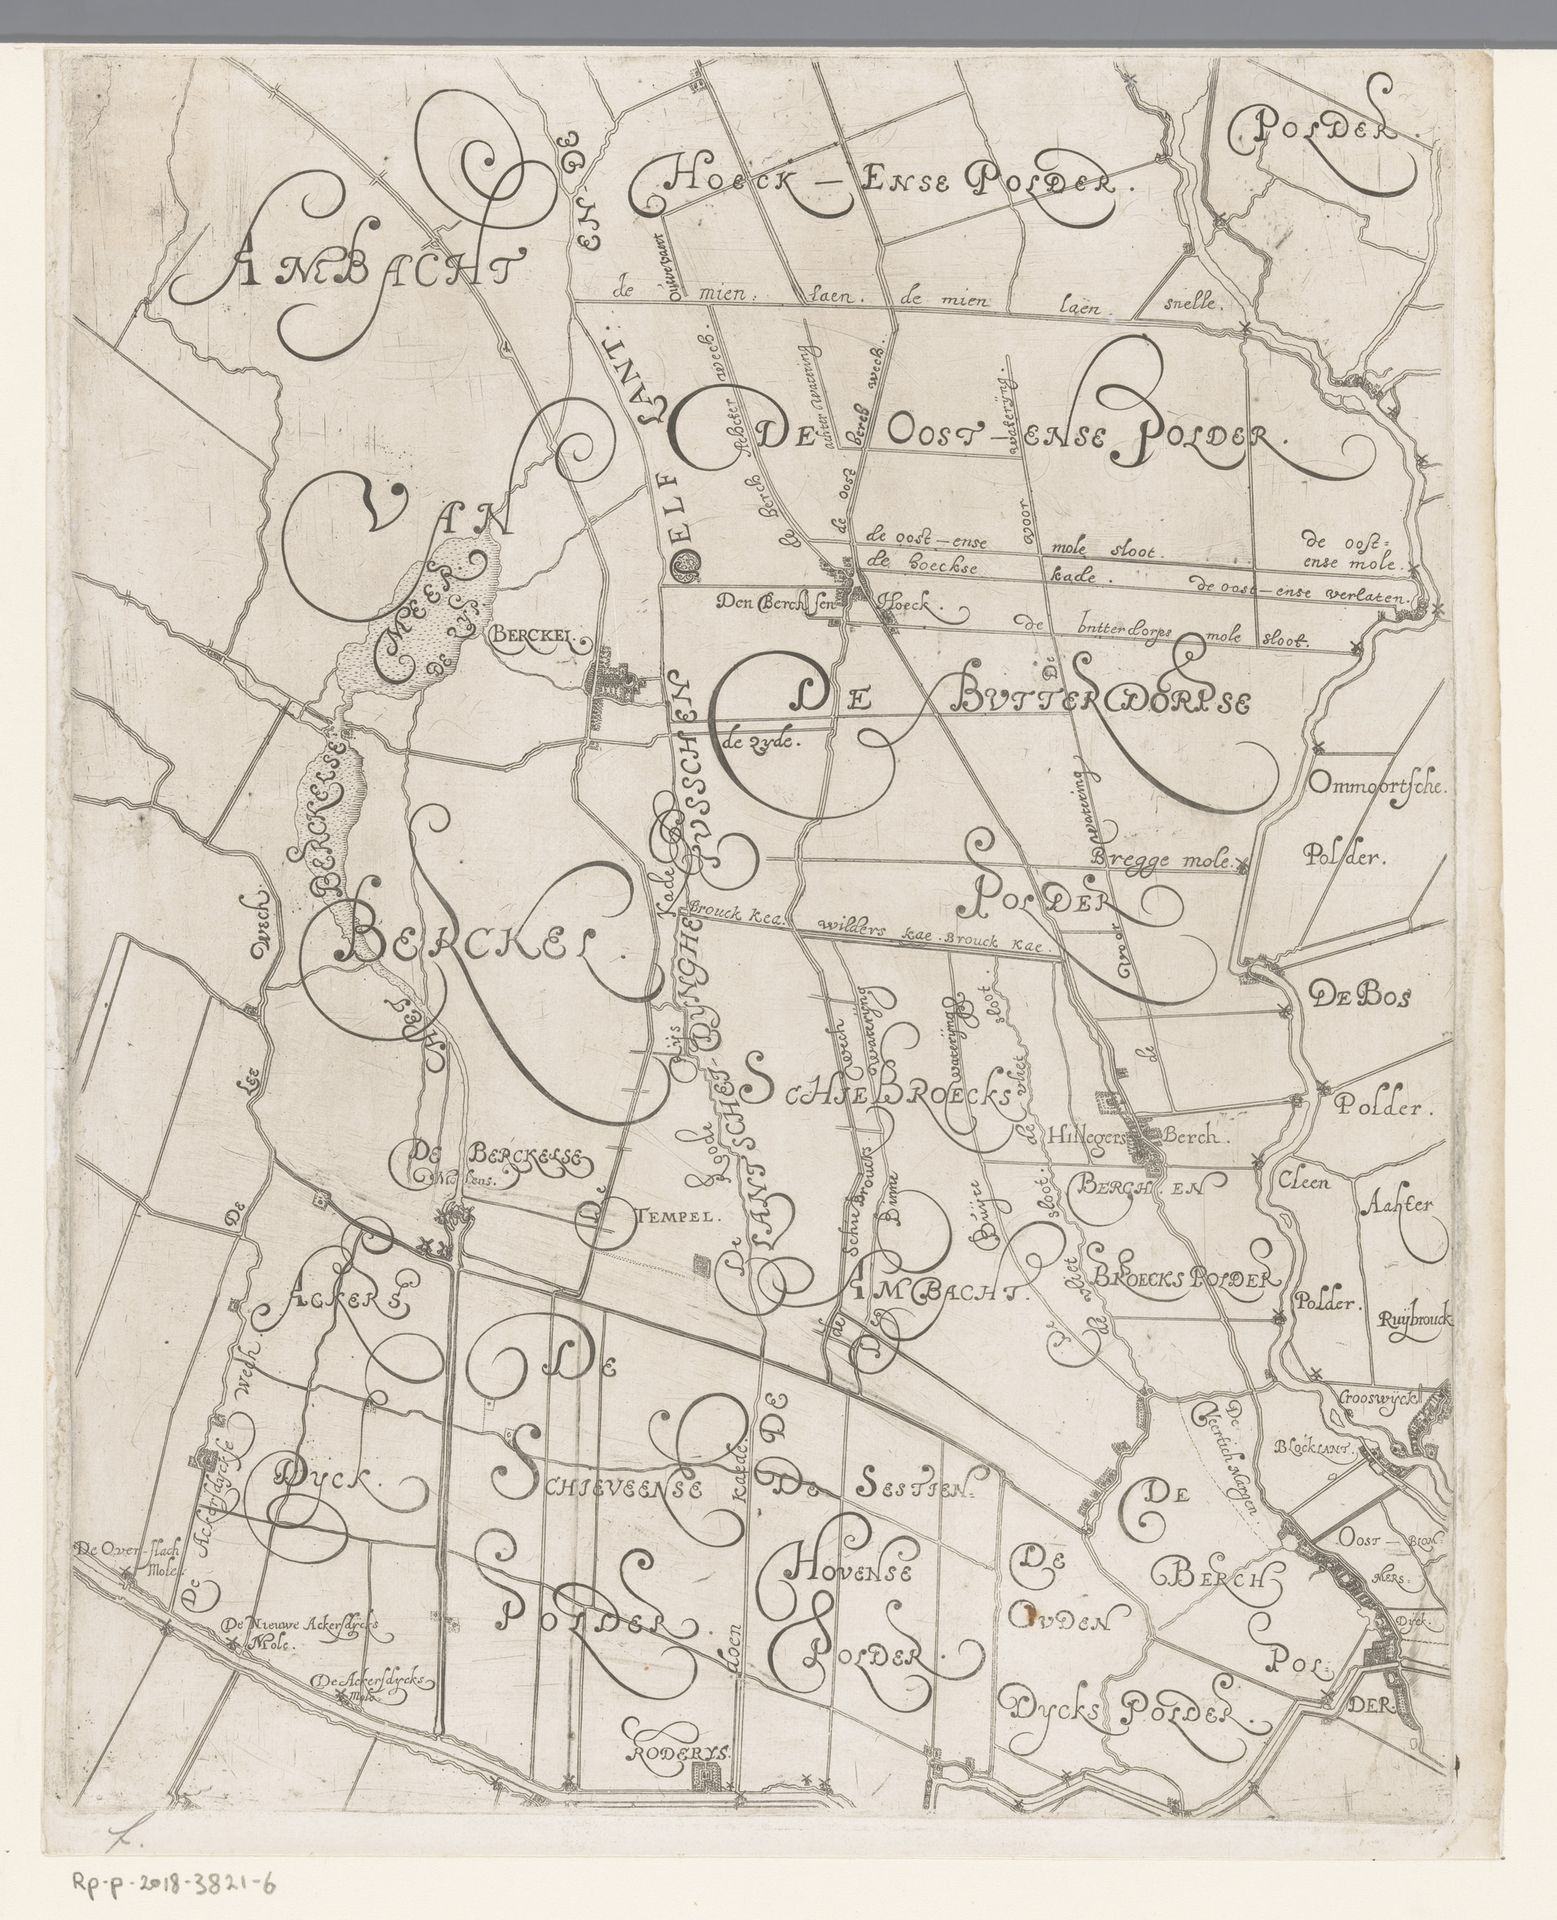 POLDER.
EN DE
HOECK — ENSE POLDER.
AMBACHT
Ouwevaert
de mien: laen. de mien laen snelle.
LANT:
DELF
de berch Achter wech.
achter watering
de oost berch wech.
voor wateryng.
DE OOST — ENSE POLDER.
VAN
de oost — ense mole sloot.
de oost=
ense mole.
de hoeckse kade.
de oost — ense verlaten.
Den Berchsen Hoeck.
de butterdorpse mole sloot.
MEER
DE LYS
BERCKEL.
DE BUTTERDORPSE
de zyde.
TUSSCHEN
BERCKELSE
Ommoortsche.
De
watering
voor
de
Bregge mole.
Polder.
POLDER
Kade
Brouck kea. wilders kae. Brouck kae.
wech.
BERCKEL.
DE BOS
SCHEYDYNGHE
SCHIE BROECKS
wech
wateryng
wateryng
sloot
vliet
de
LEE
Polder.
Hillegers Berch.
DE BERCKELSE
Molens.
BERCH EN
Cleen
Achter
DE
TEMPEL.
LANTSCHEY
Schie Broucks
Binne
Buyre
sloot.
vliet
de
ACKERS
AMBACHT.
BROECKS POLDER
Polder.
Ruijbrouck
wech.
DE
DE
Crooswyck
De
Veertich Margen.
BLOCKLANT.
DYCK.
SCHIEVEENSE
kaede
DE SESTIEN.
DE
De Ackersdyckse
De Over-slach
Mole.
HOVENSE
DE
BERCH
OOST — BLOM
MERS.
DYCK.
De Nieuwe Ackersdycks
Mole.
POLDER.
doen
POLDER.
OUDEN
POL:
DER.
De Ackersdycks
Mole.
DYCKS POLDER.
RODERYS.
f.
Rp-p-2018-3821-6